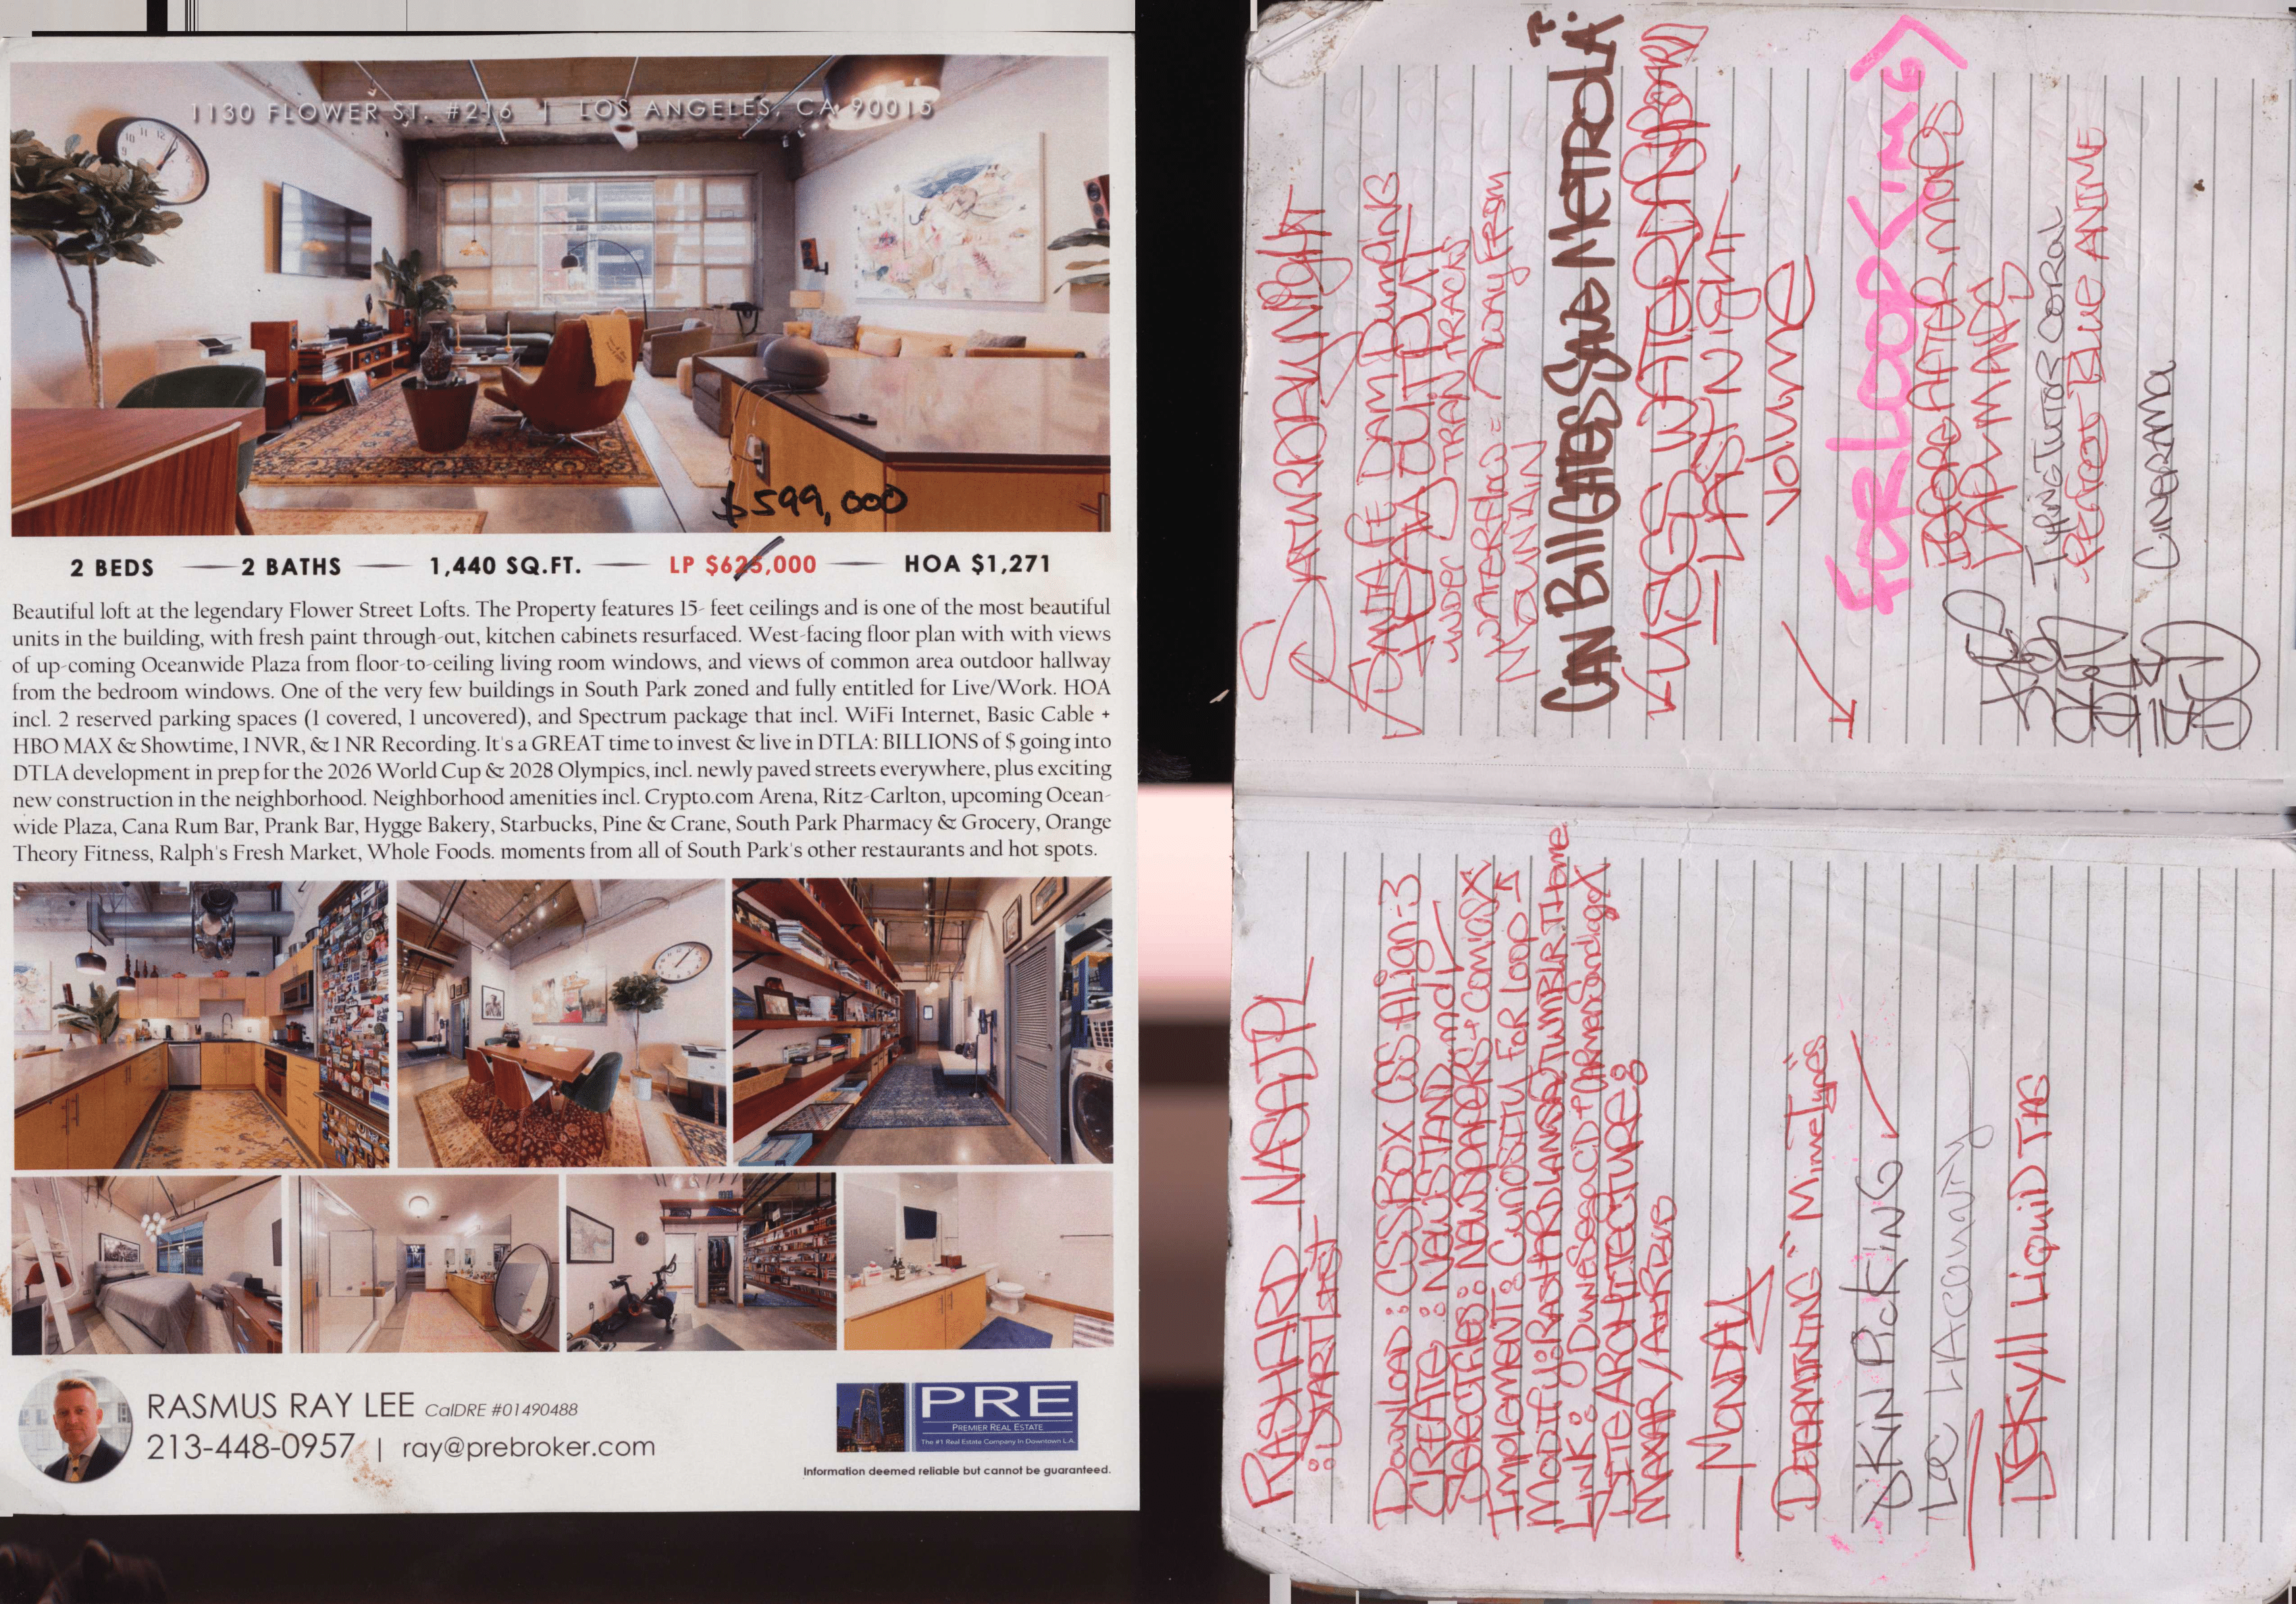 1130 FLOWER ST. #216 | LOS ANGELES, CA 90015
$599,000
2 BEDS — 2 BATHS — 1,440 SQ.FT. — LP $625,000 — HOA $1,271
Beautiful loft at the legendary Flower Street Lofts. The Property features 15- feet ceilings and is one of the most beautiful
units in the building, with fresh paint through-out, kitchen cabinets resurfaced. West-facing floor plan with with views
of up-coming Oceanwide Plaza from floor-to-ceiling living room windows, and views of common area outdoor hallway
from the bedroom windows. One of the very few buildings in South Park zoned and fully entitled for Live/Work. HOA
incl. 2 reserved parking spaces (1 covered, 1 uncovered), and Spectrum package that incl. WiFi Internet, Basic Cable +
HBO MAX & Showtime, 1 NVR, & 1 NR Recording. It's a GREAT time to invest & live in DTLA: BILLIONS of $ going into
DTLA development in prep for the 2026 World Cup & 2028 Olympics, incl. newly paved streets everywhere, plus exciting
new construction in the neighborhood. Neighborhood amenities incl. Crypto.com Arena, Ritz-Carlton, upcoming Ocean-
wide Plaza, Cana Rum Bar, Prank Bar, Hygge Bakery, Starbucks, Pine & Crane, South Park Pharmacy & Grocery, Orange
Theory Fitness, Ralph's Fresh Market, Whole Foods. moments from all of South Park's other restaurants and hot spots.
RASMUS RAY LEE CalDRE #01490488
213-448-0957 | ray@prebroker.com
PRE
PREMIER REAL ESTATE
The #1 Real Estate Company In Downtown L.A.
Information deemed reliable but cannot be guaranteed.
RASHARD - NASAJPL
: START LIST
Download: CSSBOX CSS Align-3
CREATE: NEWSSTAND.md
SPECIFIES: NEWSPAPERS + COMICS X
Implement: Curiosity FOR LOOP
Modify: RASHARDIANSA TUMBLR THEME
Link: DuneSeaCD +
SITE ARCHITECTURE:
MAXAR/AIRBUS
- MONDAY
DETERMINING "MimeTypes"
SKIN PICKING
LAC LACOUNTY
JEKYLL LIQUID TAG
SATURDAY NIGHT
SANTA FE DAM Dumping
DAM BUILT BUT
UNDER TRAIN TRACKS
WATERFLOW = AWAY FROM
MOUNTAIN
CAN Bill GATES SAVE METROLA?
USGS WATERDASHBOARD
- LAST NIGHT -
VOLUME
FORLOOP('IMG')
BEFORE AFTER MOCS
LAPD MAPS
- TYPING TUTOR CORAL
PERFECT BLUE ANIME
CINERAMA